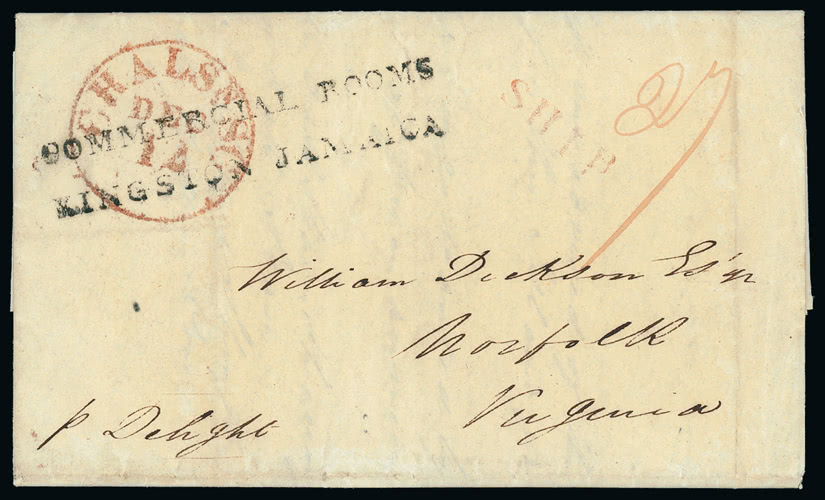 CHALSTON
DEC
12
COMMERCIAL ROOMS
KINGSTON JAMAICA
SHIP
27
William Dickson Esqr
Norfolk
Virginia
p Delight